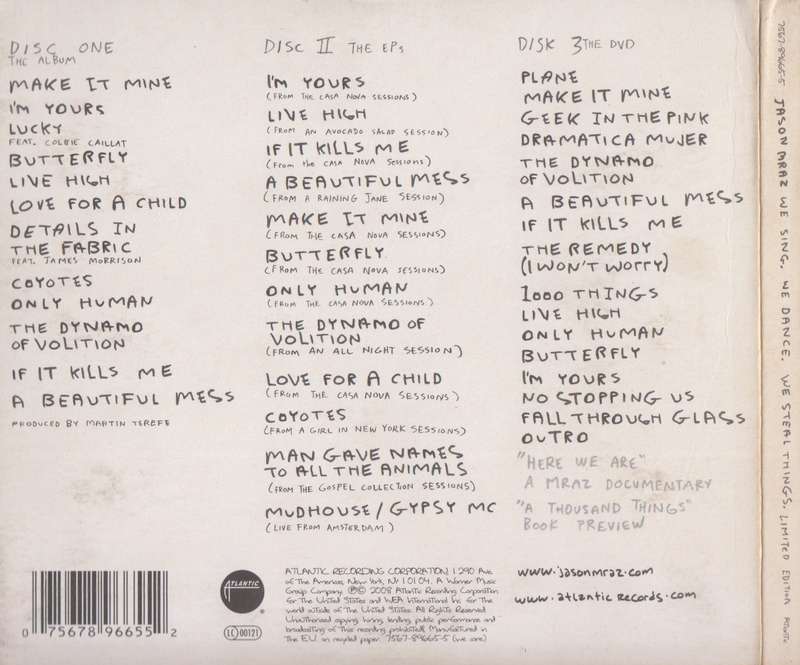 DISC ONE
THE ALBUM
MAKE IT MINE
I'M YOURS
LUCKY
FEAT. COLBIE CAILLAT
BUTTERFLY
LIVE HIGH
LOVE FOR A CHILD
DETAILS IN
THE FABRIC
FEAT. JAMES MORRISON
COYOTES
ONLY HUMAN
THE DYNAMO
OF VOLITION
IF IT KILLS ME
A BEAUTIFUL MESS
PRODUCED BY MARTIN TEREFE
DISC II THE EPs
I'M YOURS
(FROM THE CASA NOVA SESSIONS)
LIVE HIGH
(FROM AN AVOCADO SALAD SESSION)
IF IT KILLS ME
(From the CASA NOVA Sessions)
A BEAUTIFUL MESS
(FROM A RAINING JANE SESSION)
MAKE IT MINE
(FROM THE CASA NOVA SESSIONS)
BUTTERFLY
(FROM THE CASA NOVA SESSIONS)
ONLY HUMAN
(FROM THE CASA NOVA SESSIONS)
THE DYNAMO OF
VOLITION
(FROM AN ALL NIGHT SESSION)
LOVE FOR A CHILD
(FROM THE CASA NOVA SESSIONS)
COYOTES
(FROM A GIRL IN NEW YORK SESSIONS)
MAN GAVE NAMES
TO ALL THE ANIMALS
(FROM THE GOSPEL COLLECTION SESSIONS)
MUDHOUSE / GYPSY MC
(LIVE FROM AMSTERDAM)
DISK 3 THE DVD
PLANE
MAKE IT MINE
GEEK IN THE PINK
DRAMATICA MUJER
THE DYNAMO
OF VOLITION
A BEAUTIFUL MESS
IF IT KILLS ME
THE REMEDY
(I WON'T WORRY)
1000 THINGS
LIVE HIGH
ONLY HUMAN
BUTTERFLY
I'M YOURS
NO STOPPING US
FALL THROUGH GLASS
OUTRO
"HERE WE ARE"
A MRAZ DOCUMENTARY
"A THOUSAND THINGS"
BOOK PREVIEW
0 75678 96655 2
ATLANTIC
LC 00121
ATLANTIC RECORDING CORPORATION, 1290 Ave.
of The Americas, New York, NY 10104. A Warner Music
Group Company. ℗© 2008 Atlantic Recording Corporation
for The United States and WEA International Inc. for The
world outside of The United States. All Rights Reserved.
Unauthorised copying, hiring, lending, public performance and
broadcasting of This recording prohibited. Manufactured in
The E.U. on recycled paper. 7567-89665-5 (we are)
www.jasonmraz.com
www.atlanticrecords.com
7567-89665-5 JASON MRAZ WE SING. WE DANCE. WE STEAL THINGS. LIMITED EDITION ATLANTIC